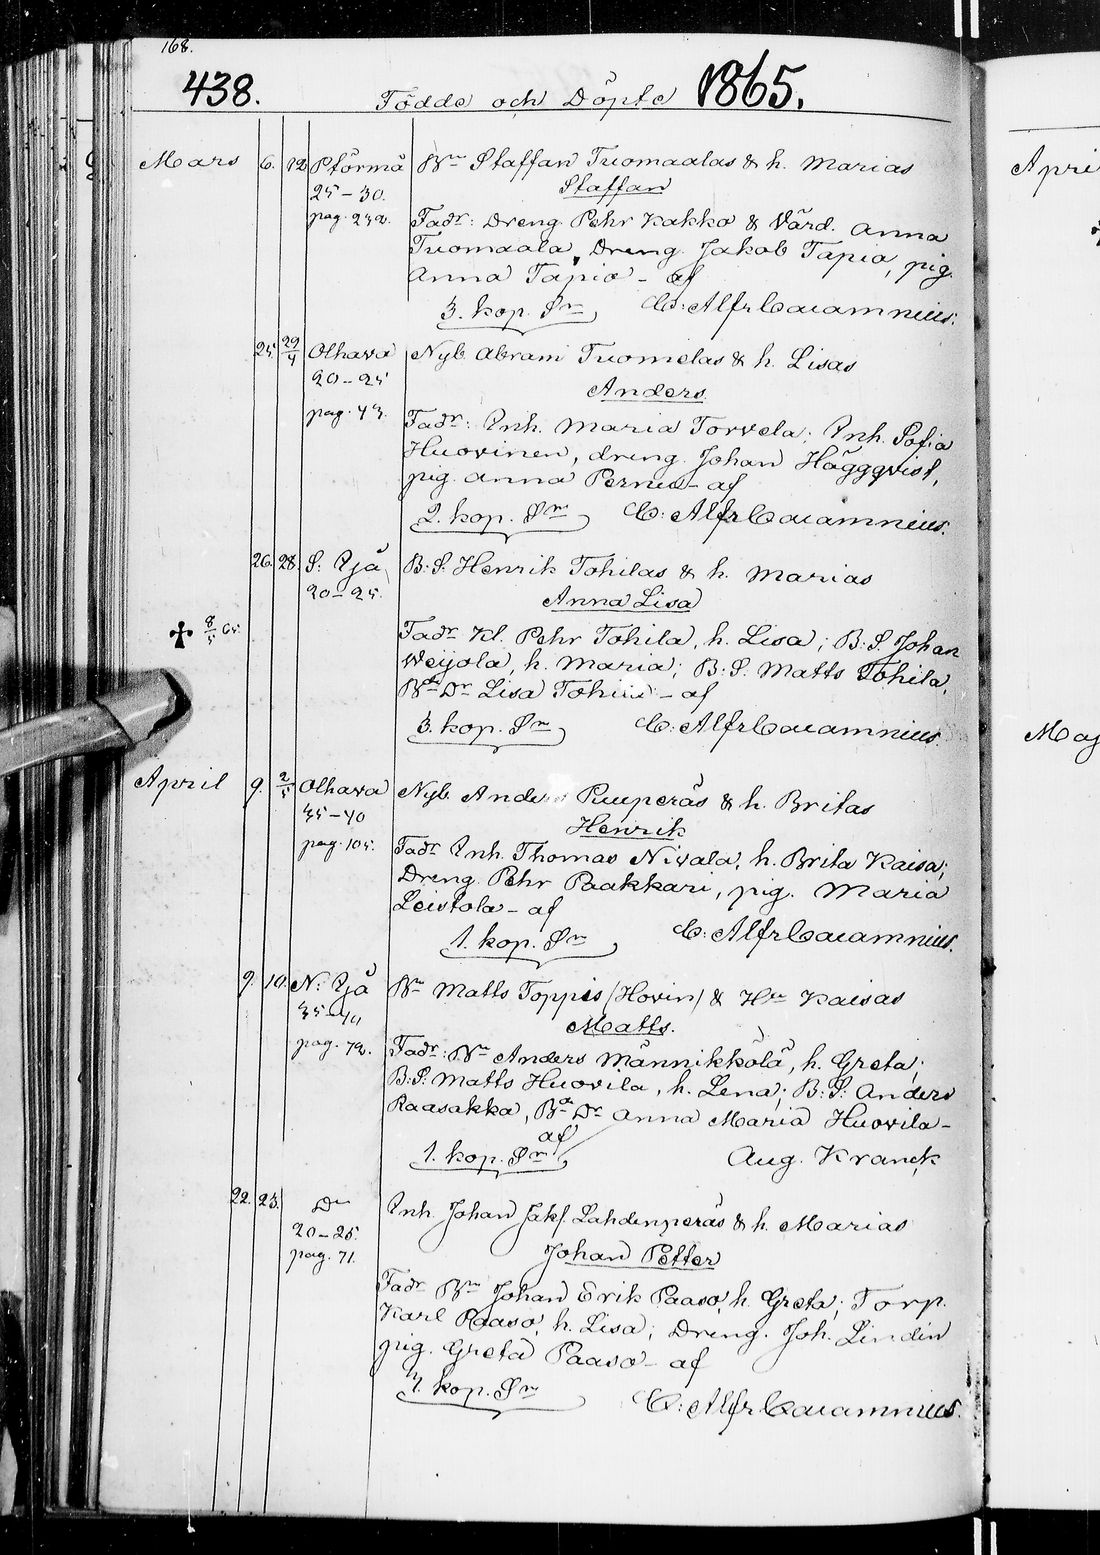 168.
438. Födde och Döpte 1865.
Mars 6. 12 Pförmä Bn Staffan Tuomaalas & h. Marias
25-30. Staffan
pag. 232. Fadr: Dreng Pehr Kakko & Värd. Anna
Tuomaala, Dreng Jakob Tapio, pig.
Anna Tapio - af
3. kop. Sm C: Alfr Cajamnius.
25. 29/4 Olhava Nyb. Abram Tuomelas & h. Lisas
20-25 Anders.
pag. 43. Fadr: Inh. Maria Torvela; Inh. Sofia
Huovinen, dreng. Johan Häggqvist,
pig. Anna Pernu - af
2. kop. Sm C: Alfr Cajamnius.
26. 28. S: Ijå B:S. Henrik Tohilas & h. Marias
20-25. Anna Lisa
✝ 8/5 65. Fadr Kl. Pehr Tohila, h. Lisa; B:S. Johan
Weijola, h. Maria; B:S. Matts Tohila,
Bde Dr Lisa Tohila - af
3. kop. Sm C: Alfr Cajamnius.
April 9. 2/5 Olhava Nyb. Anders Puuperäs & h. Britas
35-40 Henrik
pag. 105. Fadr Inh. Thomas Nivala, h. Brita Kaisa;
Dreng Pehr Paakkari, pig. Maria
Leustola - af
1. kop. Sm C: Alfr Cajamnius.
9. 10. N: Ijå Bn Matts Toppis (Hovin) & Hru Kaisas
35-40 Matts.
pag. 72. Fadr: Bn Anders Männikkölä, h. Greta;
B:S: Matts Huovila, h. Lena; B:S: Anders
Raasakka, Bde Dr Anna Maria Huovila -
af
1. kop. Sm Aug. Kranck
22. 23. Do Inh. Johan Jakf. Lahdenperäs & h. Marias
20-25. Johan Petter
pag. 71. Fadr Bn Johan Erik Paaso, h. Greta; Torp.
Karl Paaso, h. Lisa; Dreng. Joh. Lindin
pig. Greta Paaso - af
4. kop. Sm C: Alfr Cajamnius.
Apri
Maj